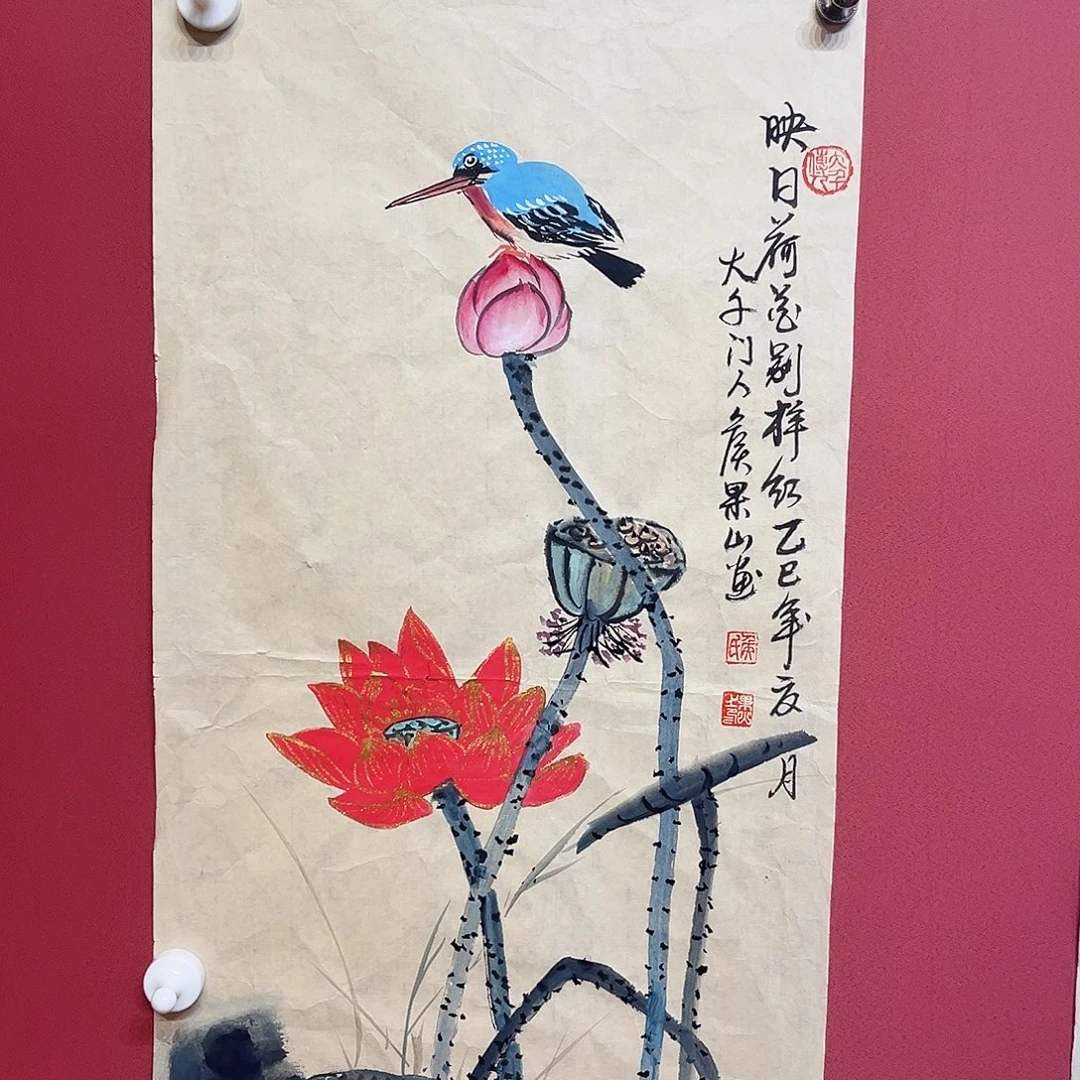 映日荷花别样红乙巳年夏月
大千门人侯果山画
侯氏